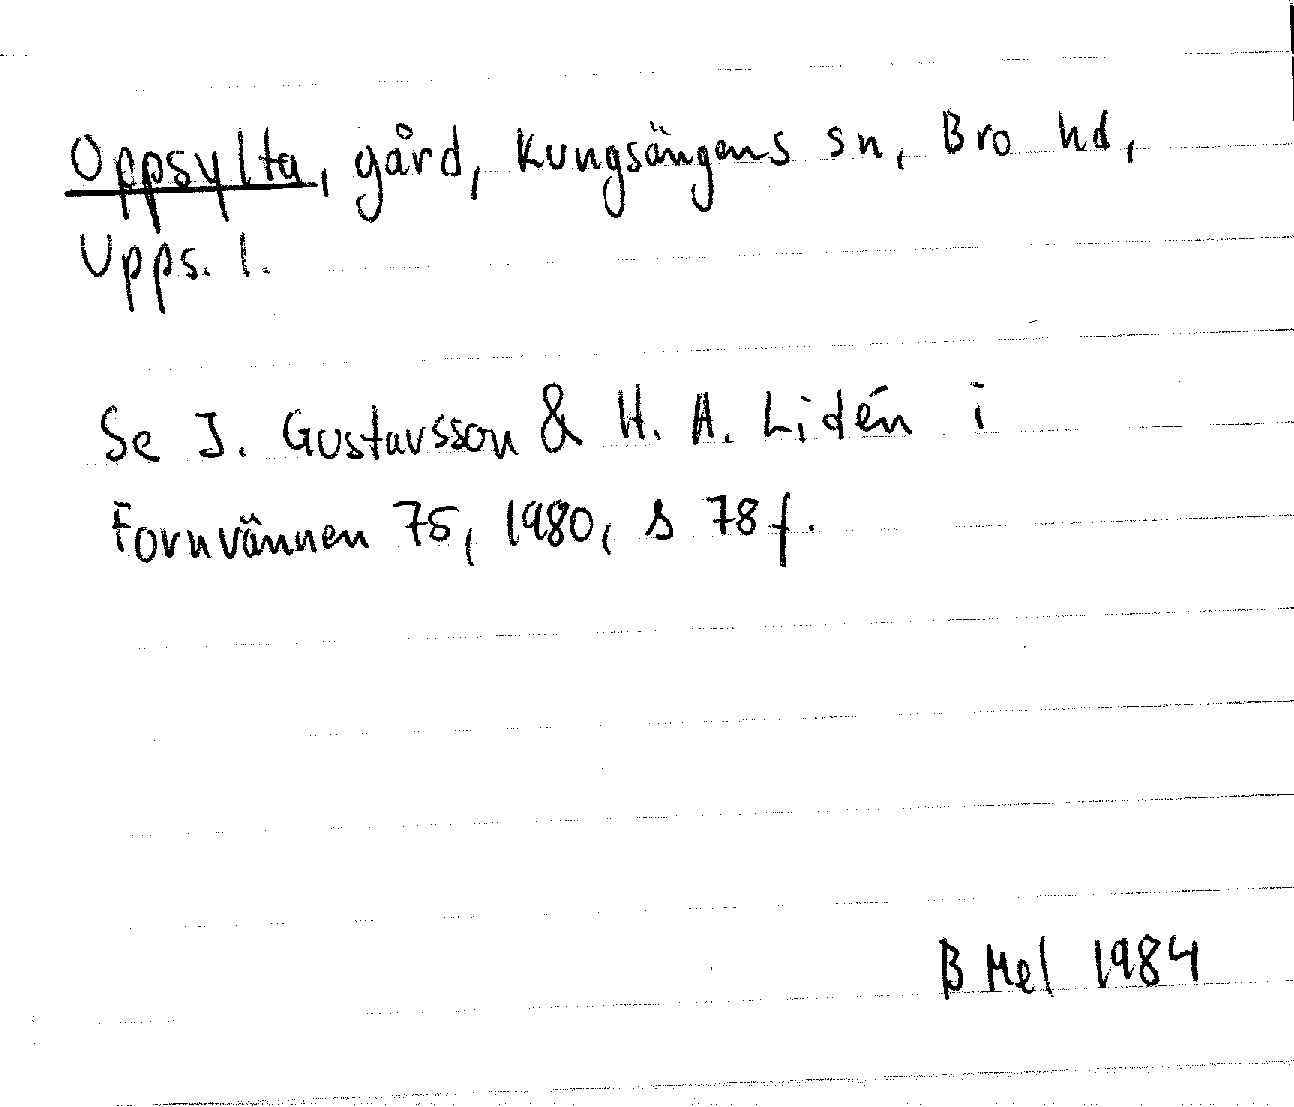 Oppsylta, gård, Kungsängens sn, Bro hd,
Upps. l.
Se J. Gustavsson & H. A. Lidén i
Fornvännen 75, 1980, s 78 f.
B Mel 1984